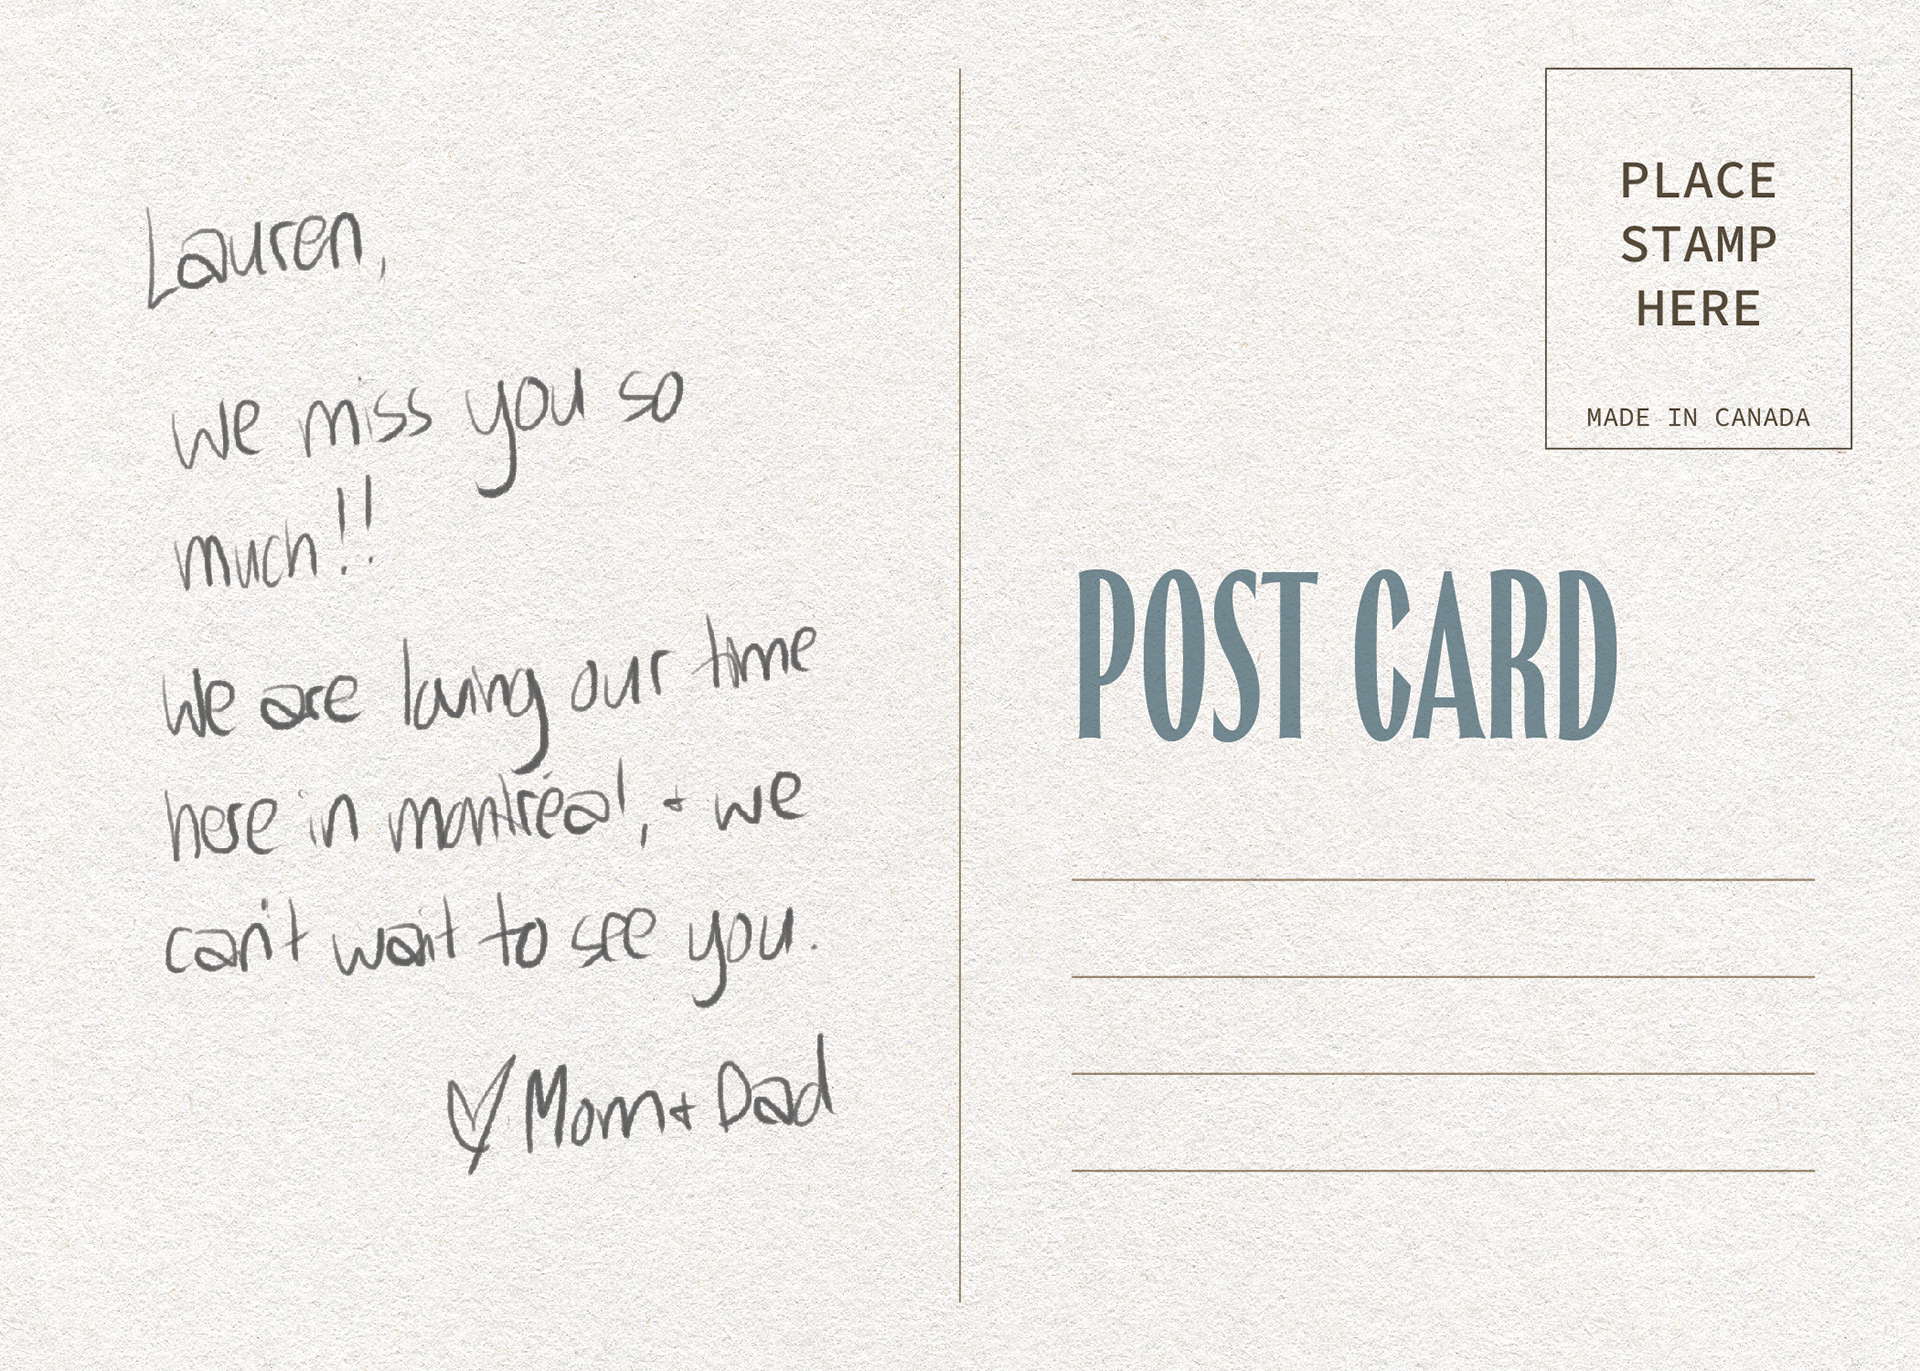 Lauren,
we miss you so
much!!
We are loving our time
here in montréal, + we
can't wait to see you.
♡ Mom + Dad
PLACE
STAMP
HERE
MADE IN CANADA
POST CARD